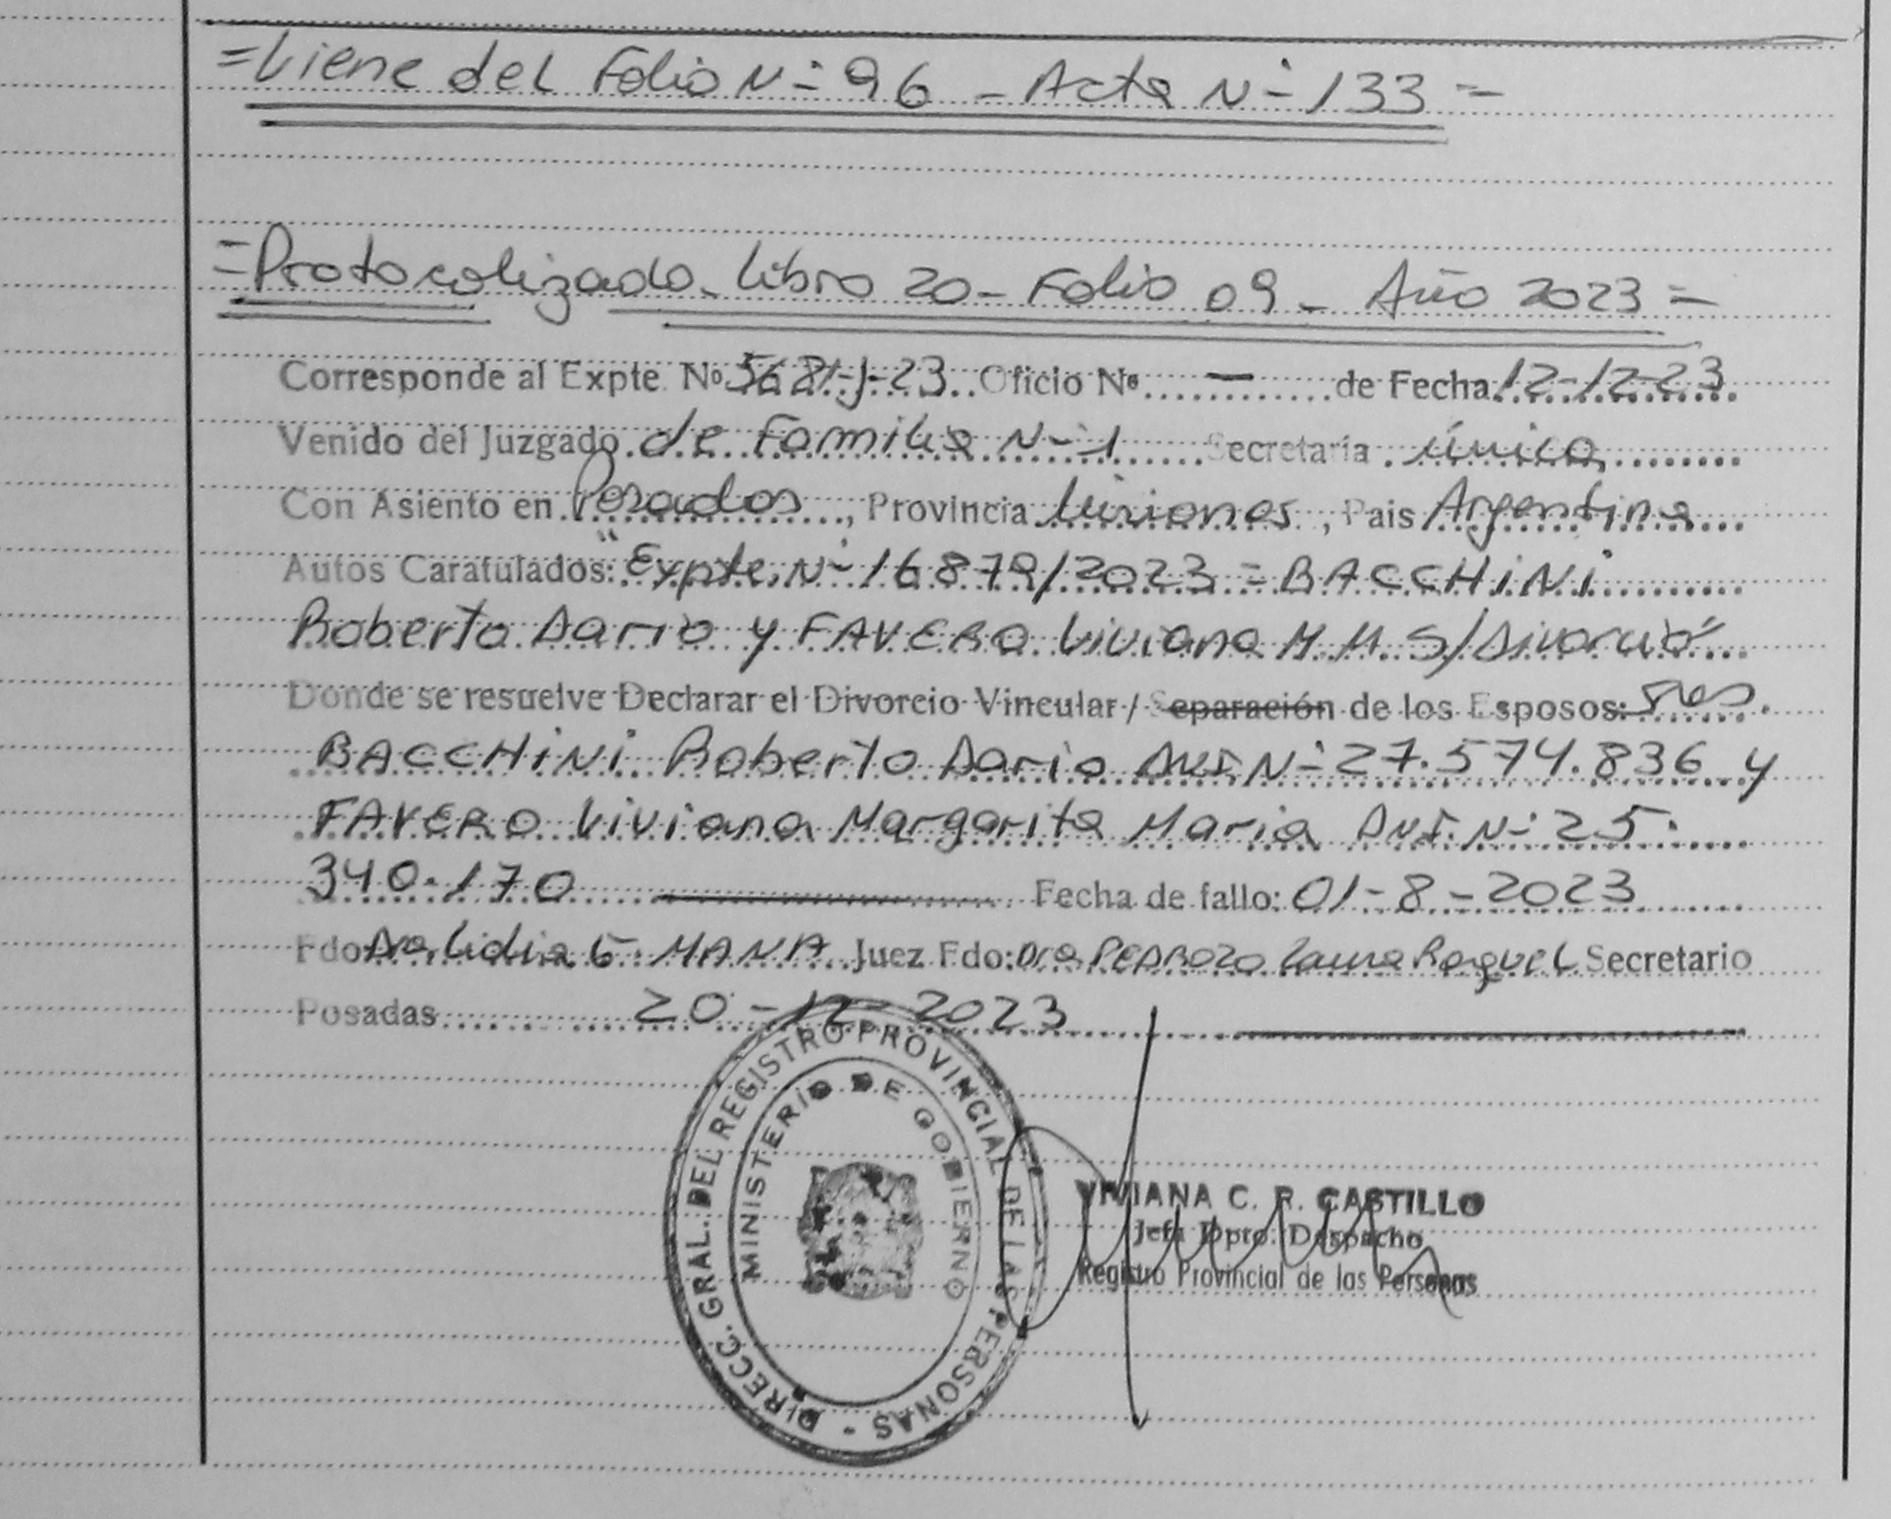 =Viene del Folio Nº 96 - Acta Nº 133=
=Protocolizado. Libro 20 - Folio 09 - Año 2023=
Corresponde al Expte. Nº 5621-J-23 Oficio Nº — de Fecha 12-12-23
Venido del Juzgado de Familia Nº 1 Secretaría única
Con Asiento en Posadas, Provincia Misiones, Pais Argentina
Autos Caratulados: "Expte. Nº 16879/2023 = BACCHINI
Roberto Dario y FAVERO Viviana M. M. S/Divorcio"
Donde se resuelve Declarar el Divorcio Vincular / Separación de los Esposos: Sres.
BACCHINI Roberto Dario DNI. Nº 27.574.836 y
FAVERO Viviana Margarita Maria DNI. Nº 25.
340.170 Fecha de fallo: 01-8-2023
Fdo Dra. Lidia G. MANA Juez Fdo: Dra PEDROZO Laura Raquel Secretario
Posadas 20-12-2023
DIRECC. GRAL. DEL REGISTRO PROVINCIAL DE LAS PERSONAS -
MINISTERIO DE GOBIERNO
VIVIANA C. R. CASTILLO
Jefa Dpto. Despacho
Registro Provincial de las Personas